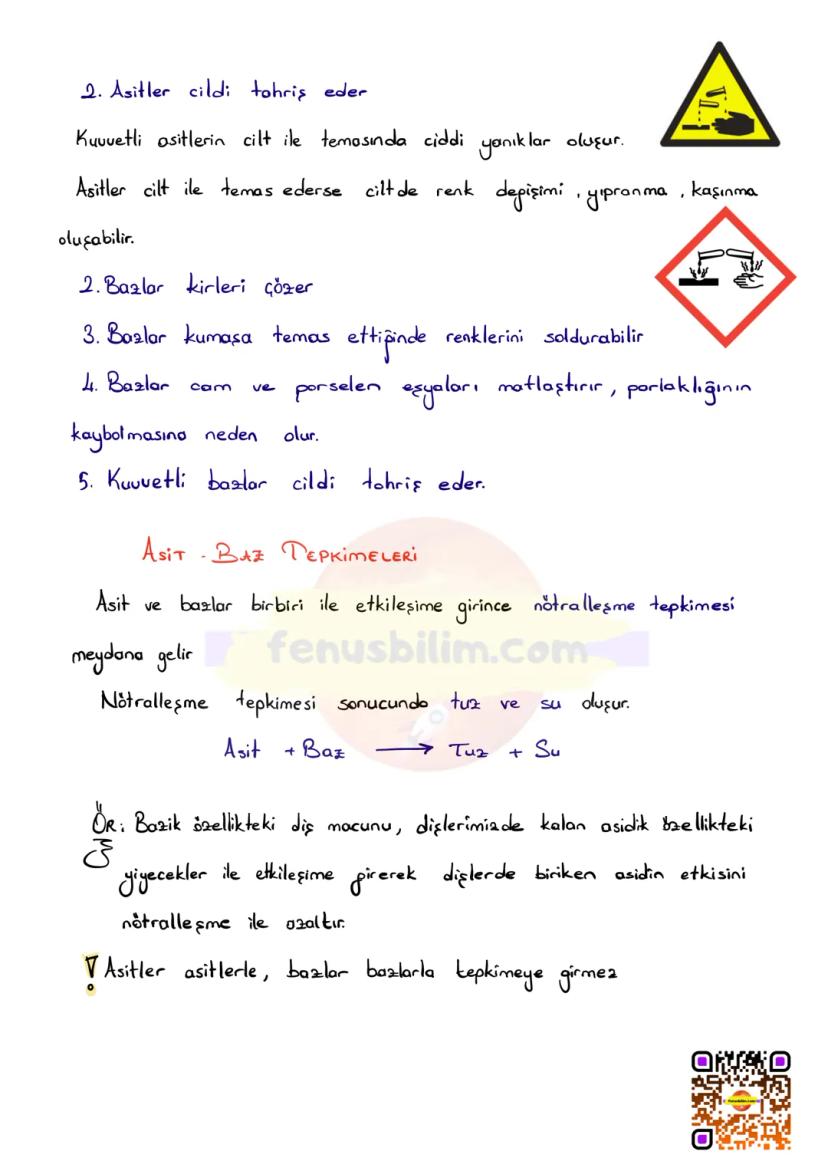 2. Asitler cildi tahriş eder
Kuvvetli asitlerin cilt ile temasında ciddi yanıklar oluşur.
Asitler cilt ile temas ederse ciltde renk değişimi, yıpranma, kaşınma
oluşabilir.
2. Bazlar kirleri çözer
3. Bazlar kumaşa temas ettiğinde renklerini soldurabilir
4. Bazlar cam ve porselen eşyaları matlaştırır, parlaklığının
kaybolmasına neden olur.
5. Kuvvetli bazlar cildi tahriş eder.
ASİT - BAZ TEPKİMELERİ
Asit ve bazlar birbiri ile etkileşime girince nötralleşme tepkimesi
meydana gelir
fenusbilim.com
Nötralleşme tepkimesi sonucunda tuz ve su oluşur.
Asit + Baz → Tuz + Su
ÖR: Bazik özellikteki diş macunu, dişlerimizde kalan asidik özellikteki
yiyecekler ile etkileşime girerek dişlerde biriken asidin etkisini
nötralleşme ile azaltır.
! Asitler asitlerle, bazlar bazlarla tepkimeye girmez
fenusbilim.com